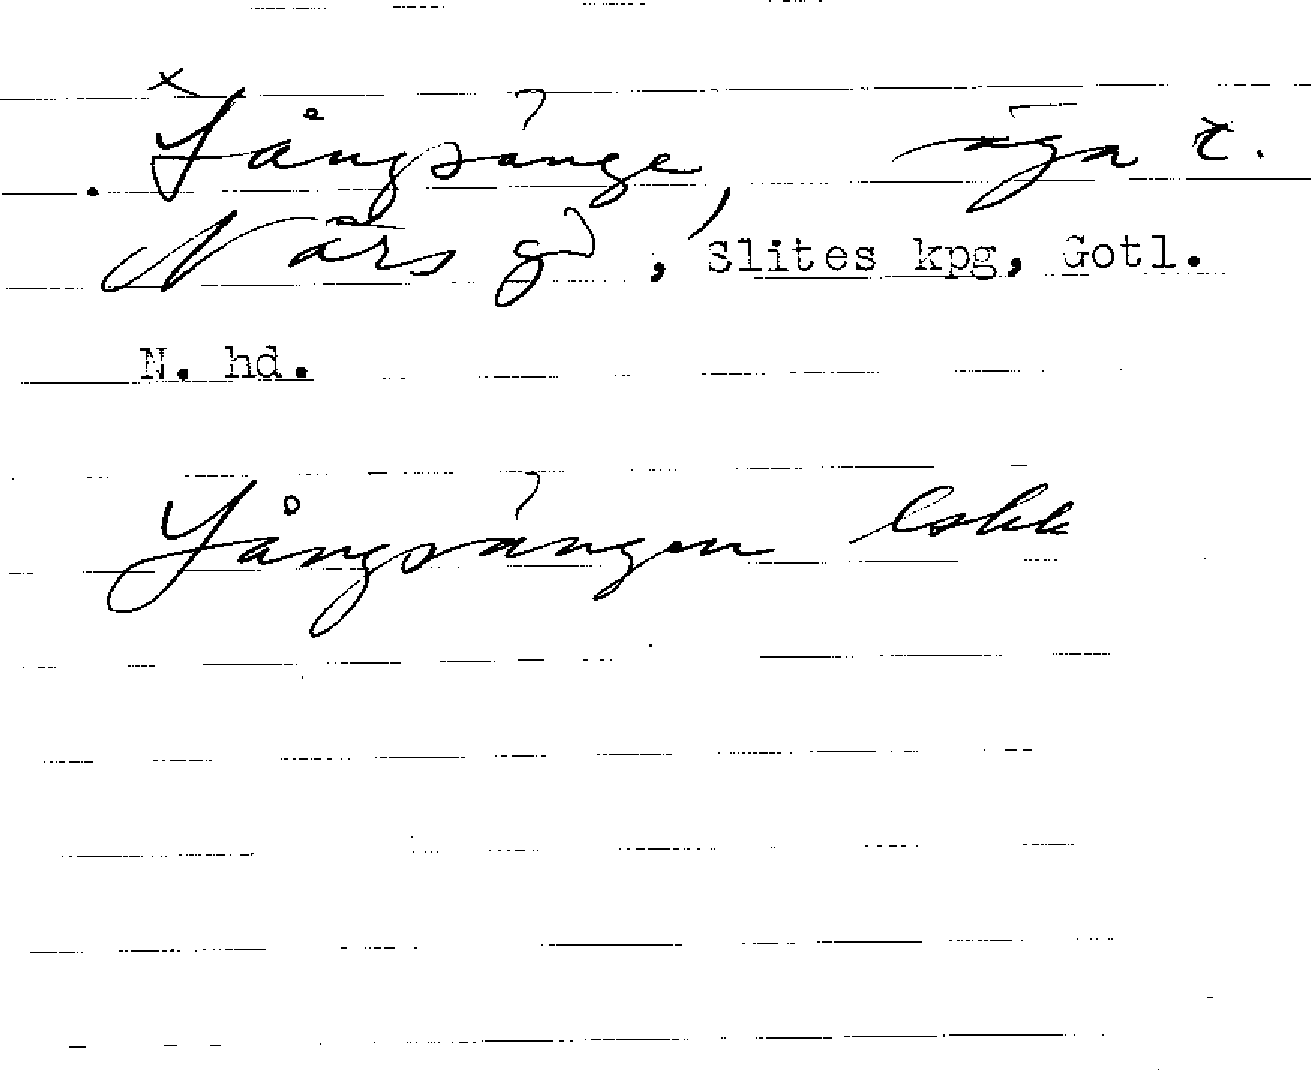 × Långsänge, äga t.
Närs gd, Slites kpg, Gotl.
N. hd.
Långsängen Lskk